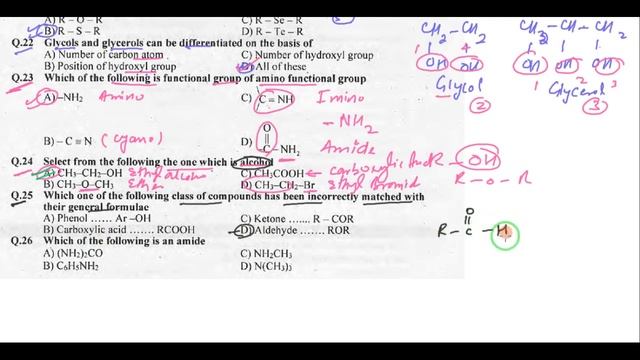 A) R – O – R C) R – Se – R
B) R – S – R D) R – Te – R
Q.22 Glycols and glycerols can be differentiated on the basis of
A) Number of carbon atom C) Number of hydroxyl group
B) Position of hydroxyl group D) All of these
CH2 – CH2
OH OH
Glycol
2
CH2 – CH – CH2
OH OH OH
1 2 3
Glycerol
3
Q.23 Which of the following is functional group of amino functional group
A) –NH2 Amino C) C = NH Imino
– NH2
B) – C ≡ N (cyano) D) O
C NH2 Amide
Q.24 Select from the following the one which is alcohol
A) CH3–CH2–OH Ethyl alcohol C) CH3COOH ← carboxylic acid R – OH
B) CH3–O–CH3 Ether D) CH3–CH2–Br Ethyl Bromid R – O – R
Q.25 Which one of the following class of compounds has been incorrectly matched with
their general formulae
A) Phenol ...... Ar –OH C) Ketone ...... R – COR
B) Carboxylic acid ...... RCOOH D) Aldehyde ...... ROR
O
R – C – H
Q.26 Which of the following is an amide
A) (NH2)2CO C) NH2CH3
B) C6H5NH2 D) N(CH3)3